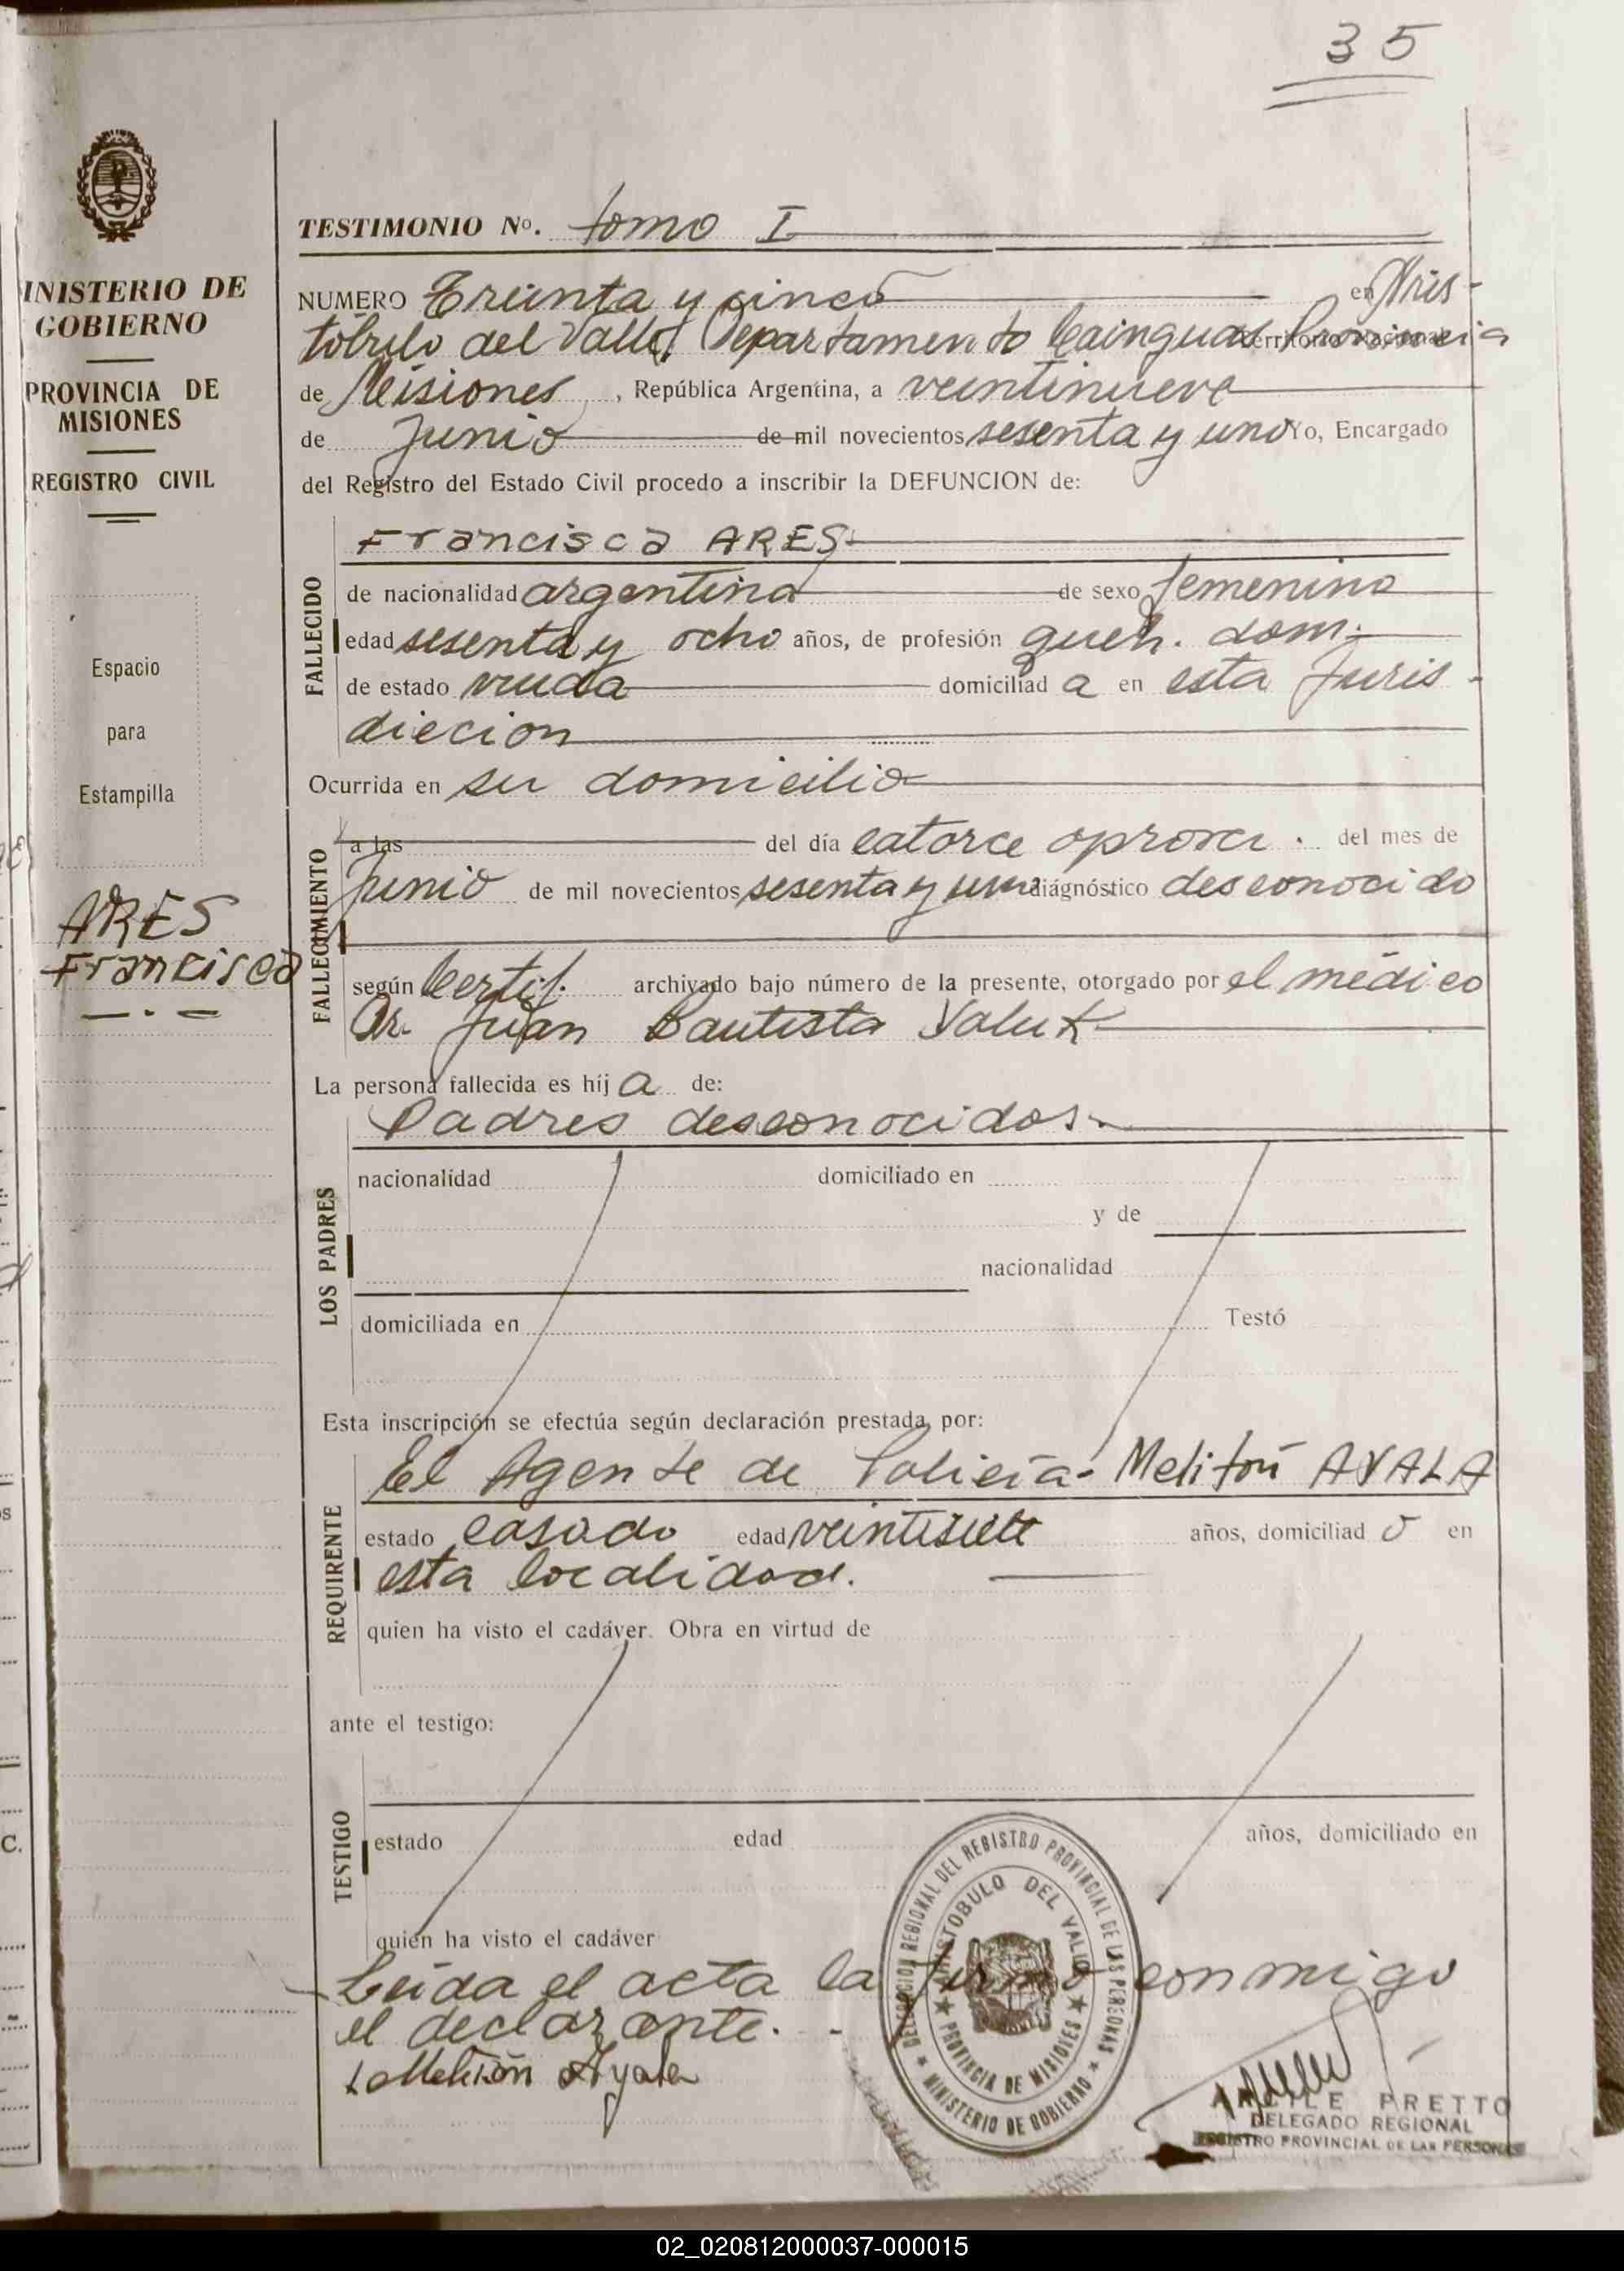 35
TESTIMONIO Nº. tomo I
INISTERIO DE
GOBIERNO
PROVINCIA DE
MISIONES
REGISTRO CIVIL
Espacio
para
Estampilla
ARES
Francisca
NUMERO Treinta y cinco en Aris-
tóbulo del Valle, Departamento Cainguas Provincia
de Misiones, República Argentina, a veintinueve
de Junio de mil novecientos sesenta y uno Yo, Encargado
del Registro del Estado Civil procedo a inscribir la DEFUNCION de:
FALLECIDO
Francisca ARES
de nacionalidad argentina de sexo femenino
edad sesenta y ocho años, de profesión queh. dom.
de estado viuda domiciliad a en esta Juris-
diccion
Ocurrida en su domicilio
FALLECIMIENTO
a las del día catorce aprox. del mes de
Junio de mil novecientos sesenta y uno diágnóstico desconocido
según Certif. archivado bajo número de la presente, otorgado por el médico
Dr. Juan Bautista
La persona fallecida es hij a de:
LOS PADRES
Padres desconocidos.
nacionalidad domiciliado en
y de
nacionalidad
domiciliada en Testó
Esta inscripción se efectúa según declaración prestada por:
REQUIRENTE
El Agente de Policía- Melitón AYALA
estado casado edad veintisiete años, domiciliad o en
esta localidad.
quien ha visto el cadáver. Obra en virtud de
ante el testigo:
TESTIGO
estado edad años, domiciliado en
quien ha visto el cadáver
Leida el acta la firmó conmigo
el declarante.
Melitón Ayala
DELEGACION REGIONAL DEL REGISTRO PROVINCIAL DE LAS PERSONAS
★ MINISTERIO DE GOBIERNO ★
ARISTOBULO DEL VALLE
★ PROVINCIA DE MISIONES ★
PRETTO
DELEGADO REGIONAL
REGISTRO PROVINCIAL DE LAS PERSONAS
C.
02_020812000037-000015